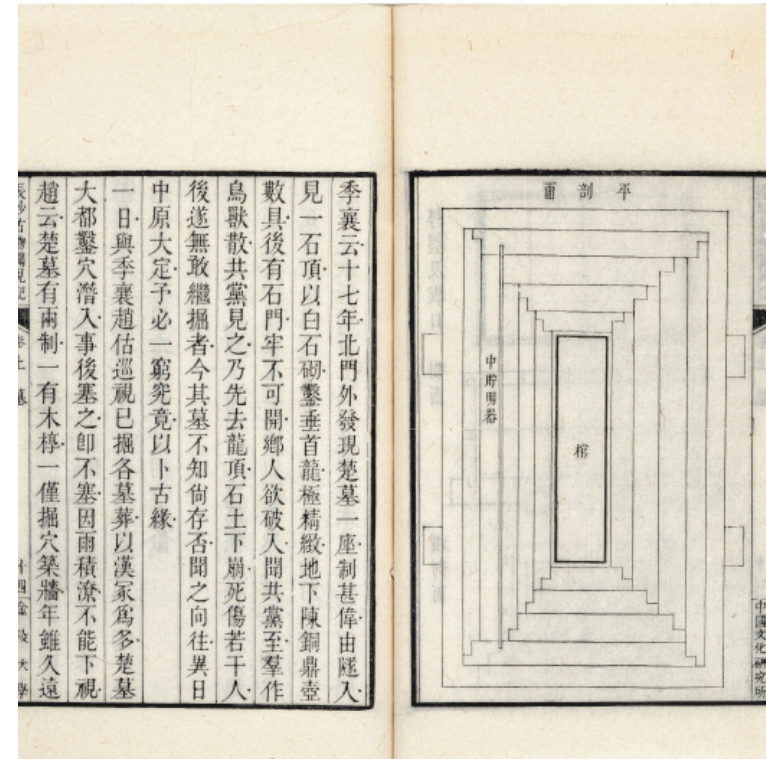 中國文化研究所
平剖面
中貯明器
棺
季襄云十七年北門外發現楚墓一座制甚偉由隧入
見一石頂以白石砌鑿垂首龍極精緻地下陳銅鼎壺
數具後有石門牢不可開鄉人欲破入聞共黨至羣作
鳥獸散共黨見之乃先去龍頂石土下崩死傷若干人
後遂無敢繼掘者今其墓不知尙存否聞之向往異日
中原大定予必一窮究竟以卜古緣
一日與季襄趙估巡視已掘各墓葬以漢冢爲多楚墓
大都鑿穴潛入事後塞之卽不塞因雨積潦不能下視
趙云楚墓有兩制一有木椁一僅掘穴築牆年雖久遠
長沙古物聞見記 卷上 墓 十四 金陵大學